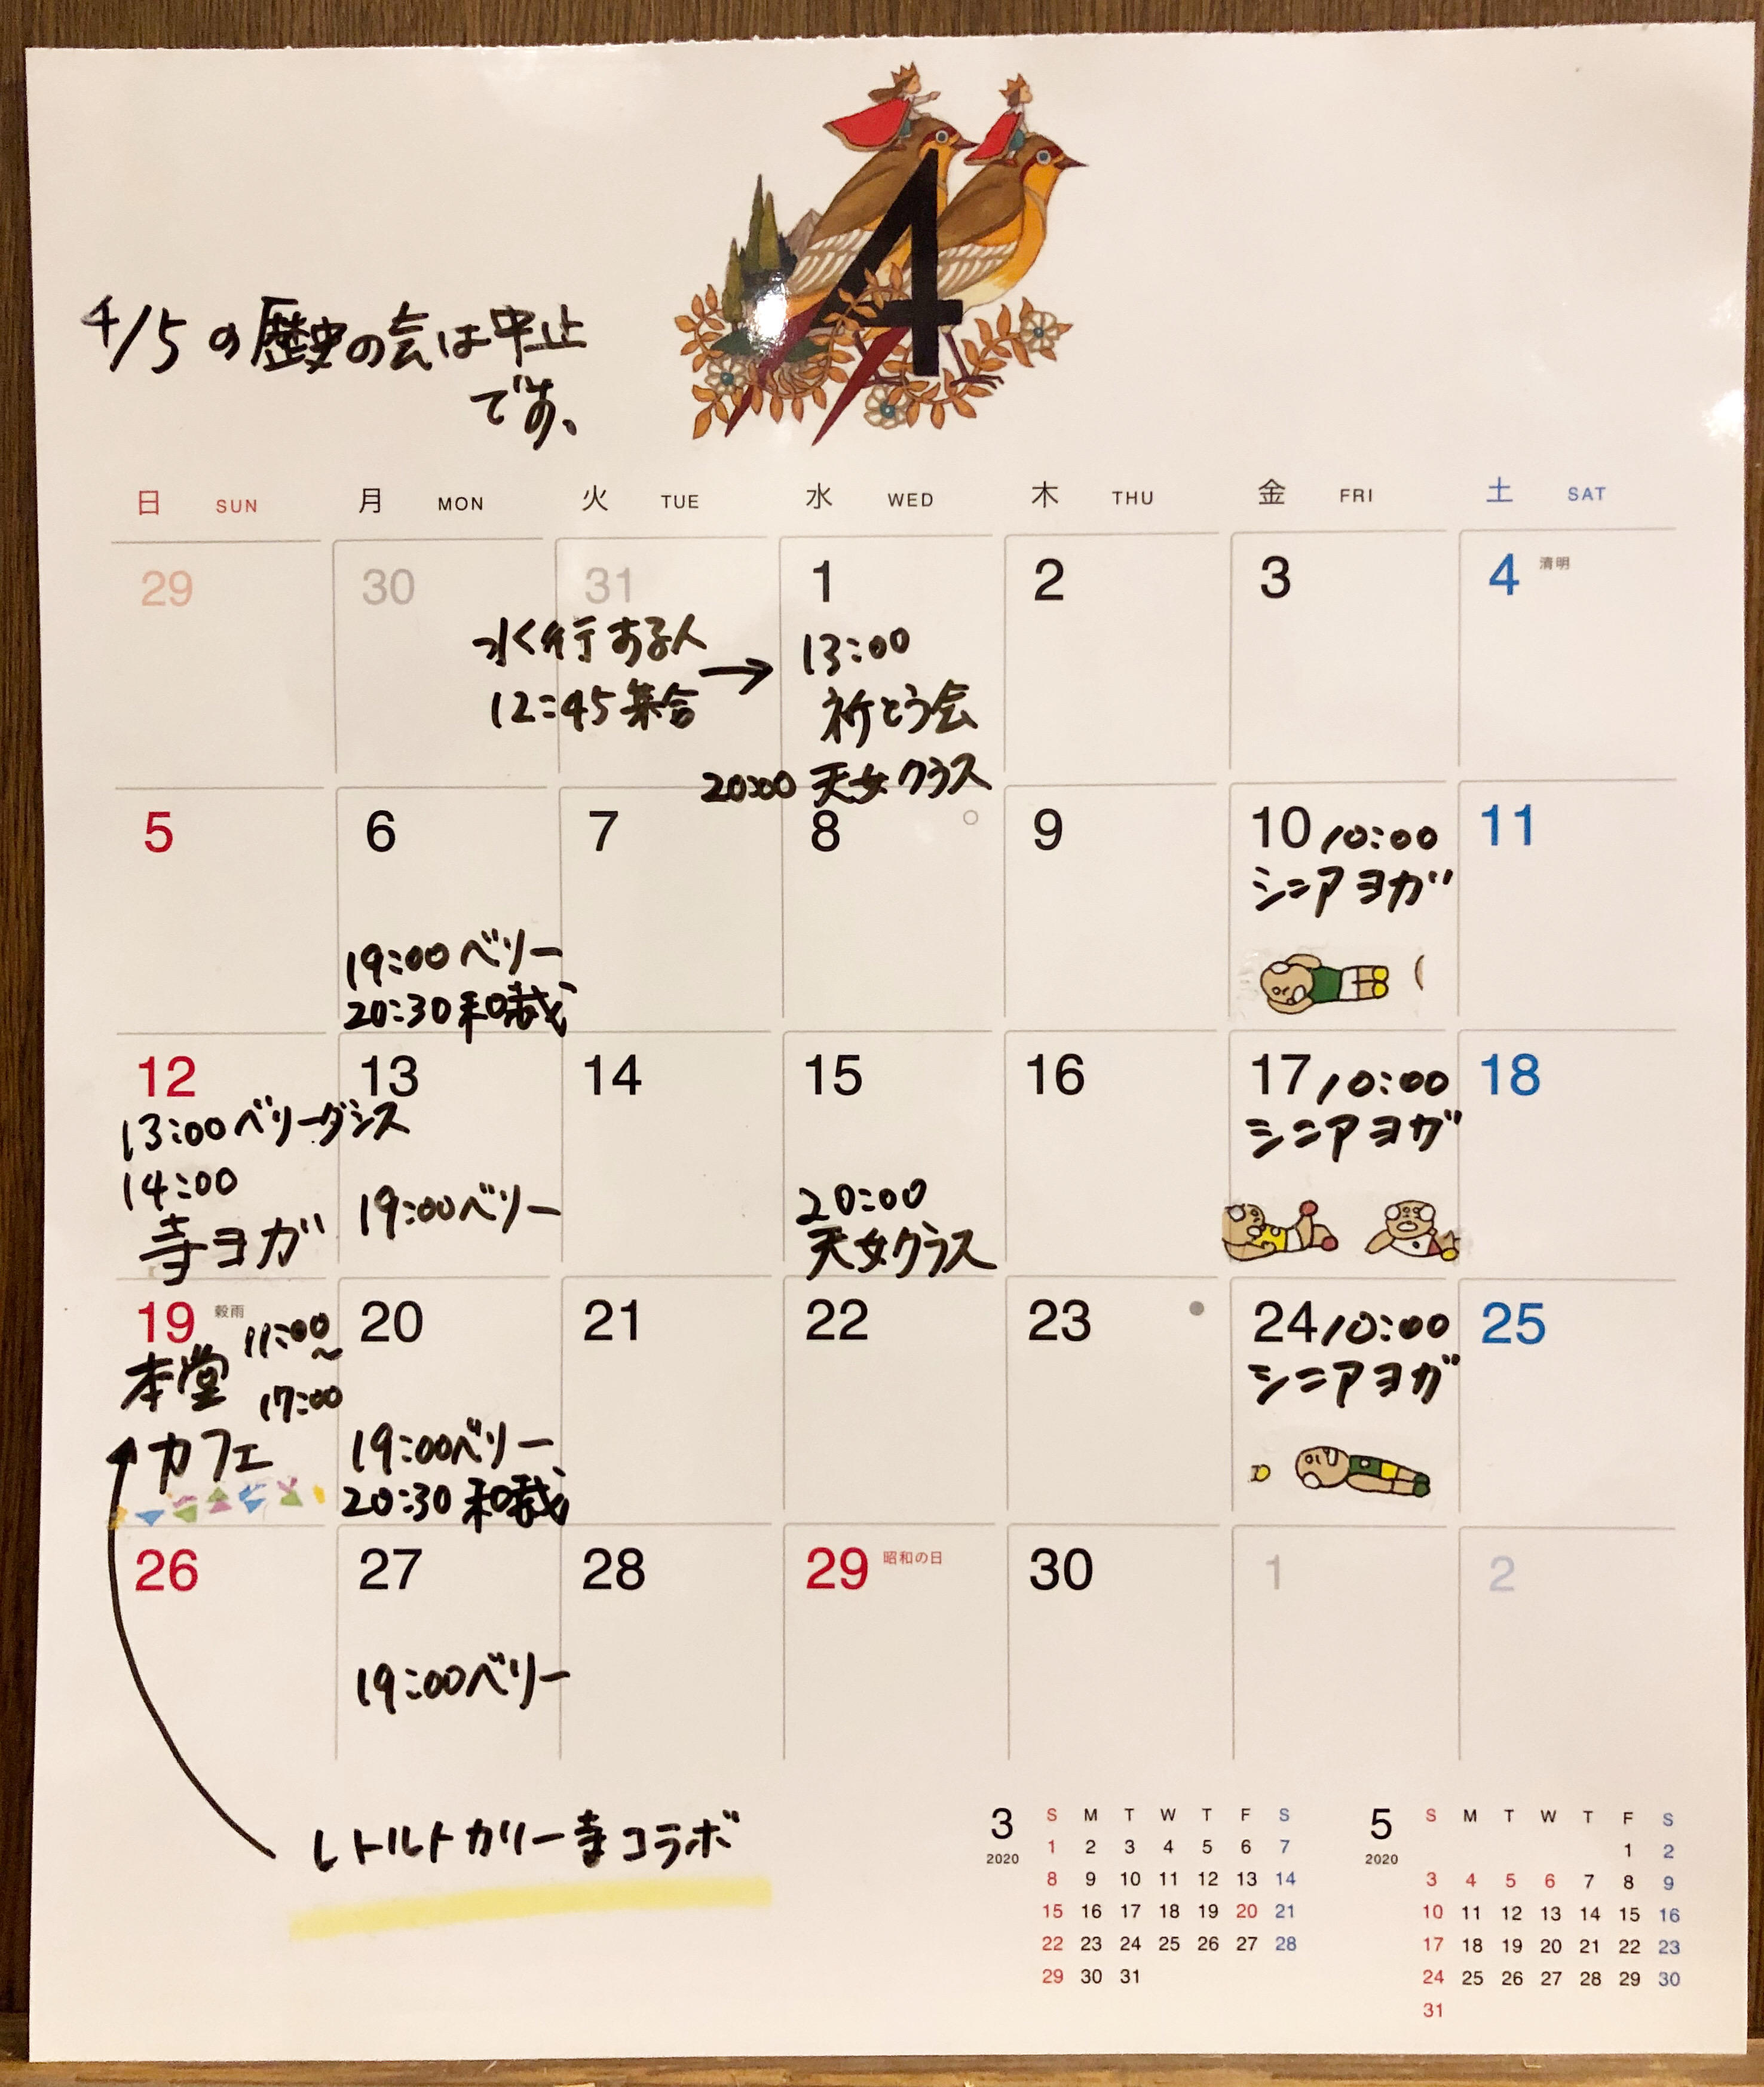 4
4/5の歴史の会は中止
です、
日 SUN 月 MON 火 TUE 水 WED 木 THU 金 FRI 土 SAT
29 30 31 1 2 3 4 清明
水行する人
12:45集合 →
13:00
祈とう会
20:00 天女クラス
5 6 7 8 9 10 11
19:00 ベリー
20:30 和裁
10:00
シニアヨガ
12 13 14 15 16 17 18
13:00 ベリーダンス
14:00
寺ヨガ
19:00 ベリー
20:00
天女クラス
10:00
シニアヨガ
19 穀雨 20 21 22 23 24 25
11:00
~
17:00
本堂
カフェ
19:00 ベリー
20:30 和裁
10:00
シニアヨガ
26 27 28 29 昭和の日 30 1 2
19:00 ベリー
レトルトカリー寺コラボ
3
2020
S M T W T F S
1 2 3 4 5 6 7
8 9 10 11 12 13 14
15 16 17 18 19 20 21
22 23 24 25 26 27 28
29 30 31
5
2020
S M T W T F S
1 2
3 4 5 6 7 8 9
10 11 12 13 14 15 16
17 18 19 20 21 22 23
24 25 26 27 28 29 30
31